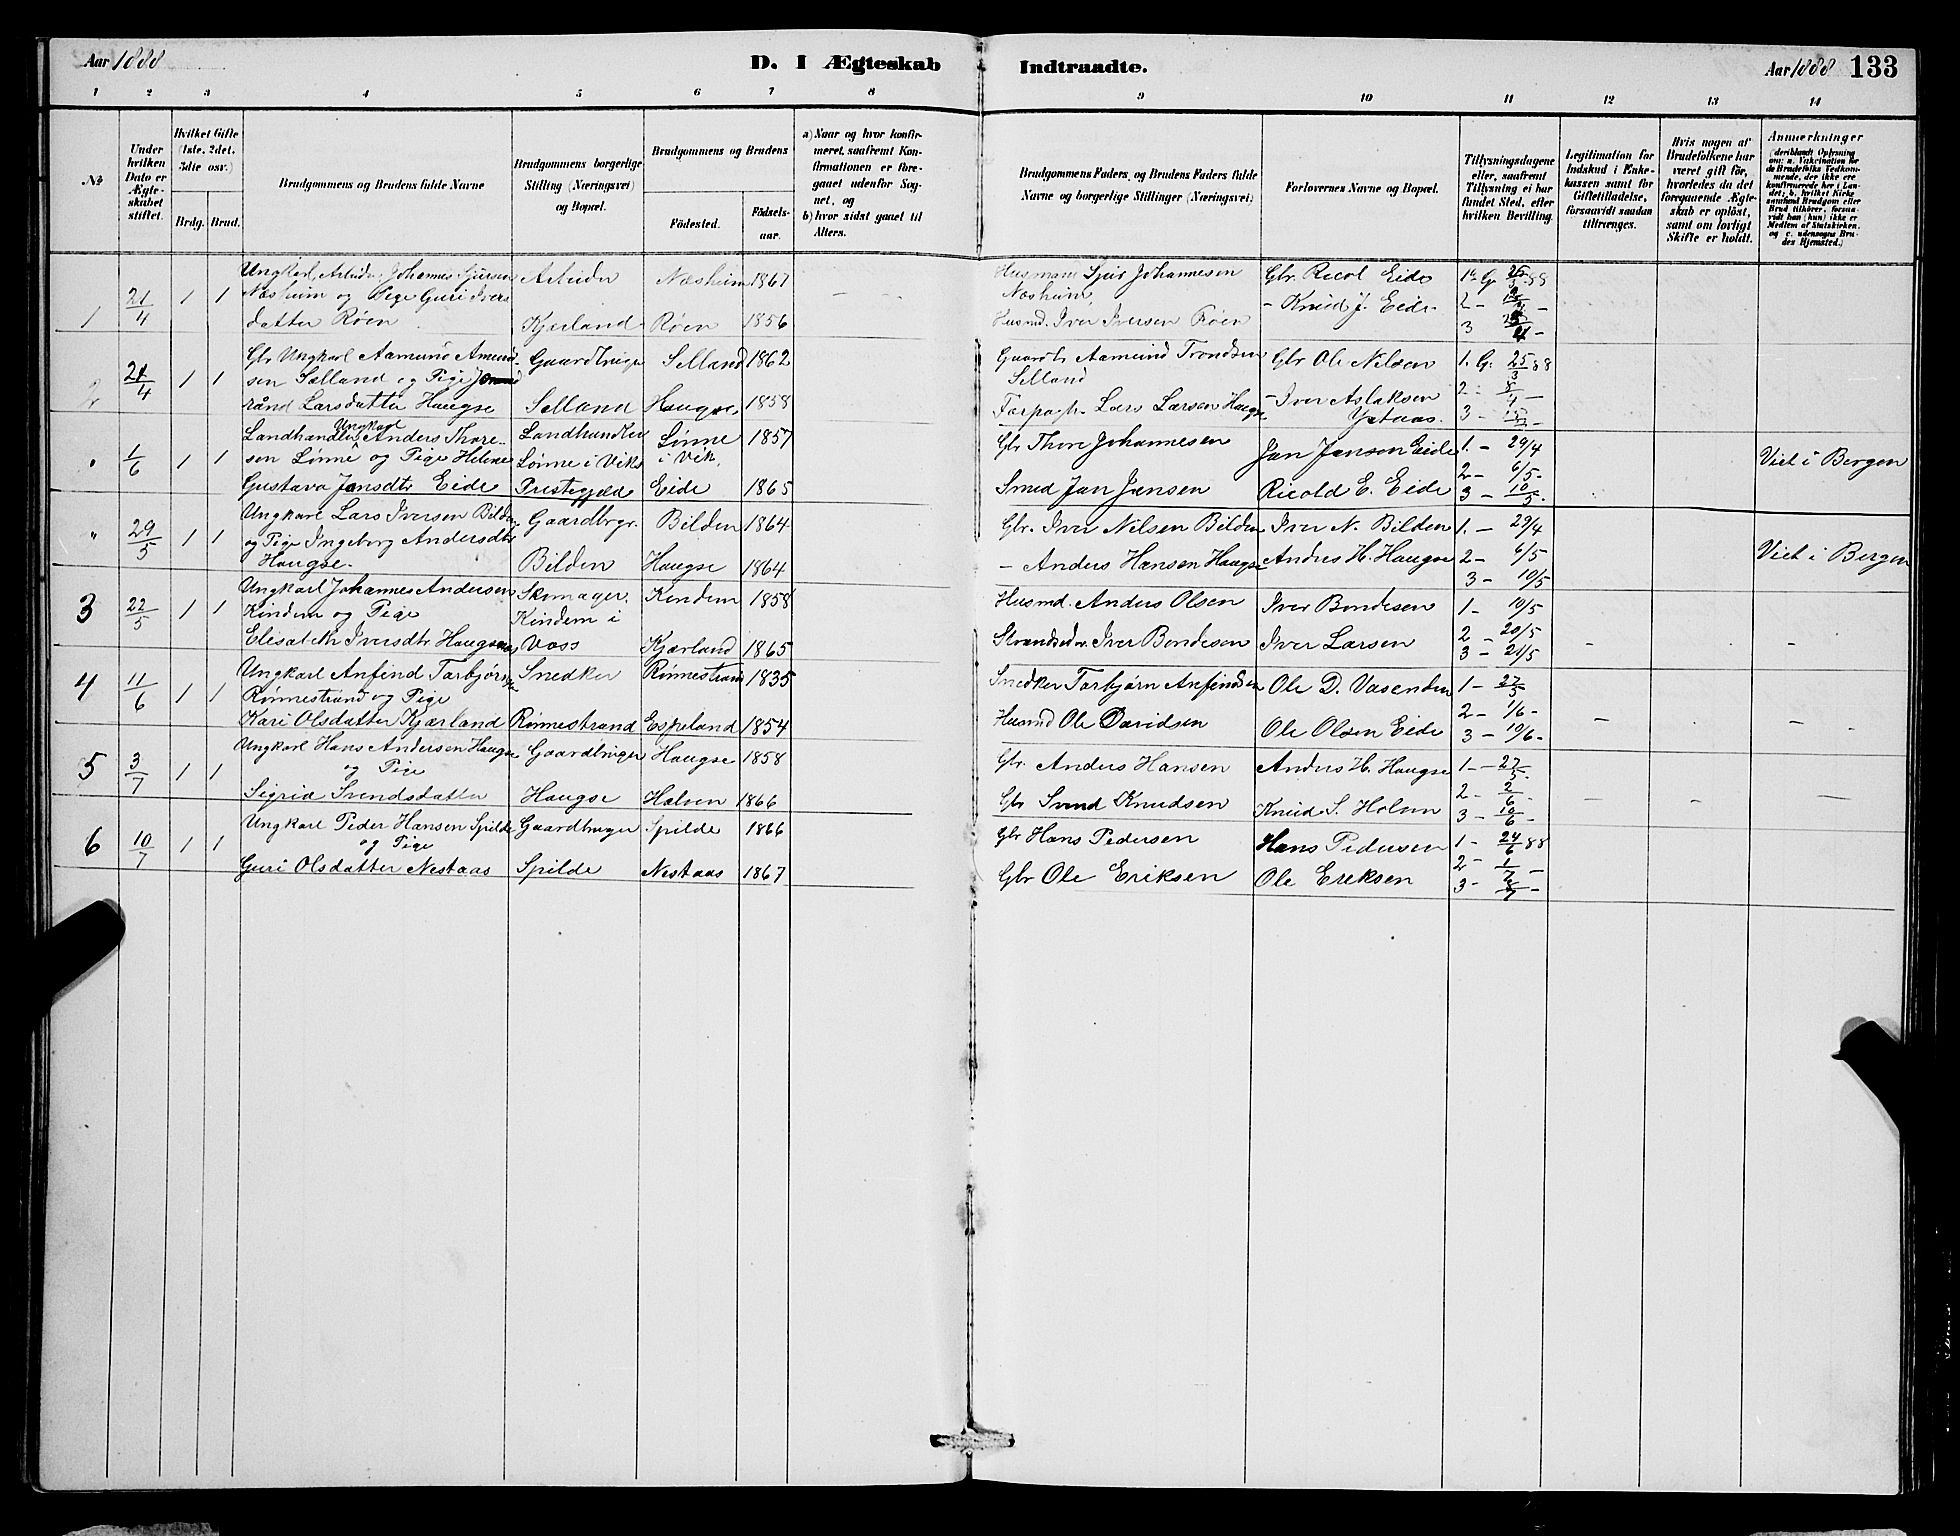 Aar 1888
D. I Ægteskab Indtraadte.
Aar 1888 133
1 2 3 4 5 6 7 8 9 10 11 12 13 14
No.
Under hvilken Dato er Ægteskabet stiftet.
Hvilket Gifte (1ste, 2det, 3die osv.)
Brdg. Brud.
Brudgommens og Brudens fulde Navne
Brudgommens borgerlige Stilling (Næringsvei) og Bopæl.
Brudgommens og Brudens
Födested.
Födselsaar.
a) Naar og hvor konfirmeret, saafremt Konfirmationen er foregaaet udenfor Sognet, og
b) hvor sidst gaaet til Alters.
Brudgommens Faders, og Brudens Faders fulde Navne og borgerlige Stillinger (Næringsvei)
Forlovernes Navne og Bopæl.
Tillysningsdagene eller, saafremt Tillysning ei har fundet Sted, efter hvilken Bevilling.
Legitimation for Indskud i Enkekassen samt for Giftetilladelse, forsaavidt saadan tiltrænges.
Hvis nogen af Brudefolkene har været gift för, hvorledes da det foregaaende Ægteskab er oplöst, samt om lovligt Skifte er holdt.
Anmerkninger
(deriblandt Oplysning om: a. Vakcination for de Brudefolks Vedkommende, der ikke ere konfirmerede her i Landet; b. hvilket Kirkesamfund Brudgom eller Brud tilhörer, forsaavidt han (hun) ikke er Medlem af Statskirken, og c. udensogns Brudes Hjemsted.)
1 21/4 1 1 Ungkarl Arbeider Johannes Sjursen Arbeider Næsheim 1867 Husmand Sjur Johannesen Gbr. Ricol Eide 1ste G. 25/3 88
Næsheim og Pige Guri Ivers Næsheim, - Knud J. Eide. 2 -
datter Röen Kjærland Röen 1856 Husmd. Iver Iversen Röen 3
2 21/4 1 1 Gbr Ungkarl Aamund Amund- Gaardbruger Selland 1862 Gaardbr Aamund Trondsen Gbr Ole Nilsen 1. G. 25/3 88
sen Sælland og Pige Selland - Iver Aslaksen 2 -
rånd Larsdatter Haugse Selland Haugse 1858 Forpagt. Lars Larsen Haugse Ystaas. 3 -
" 1/6 1 1 Landhandler Ungkarl Anders Thore- Landhandler Lönne 1857 Gbr Thore Johannesen Jan Jansen Eide 1 - 29/4
sen Lönne og Pige Helene Lönne i Viks i Vik, 2 - 6/5 - Viet i Bergen
Gustava Jansdtr Eide Prestegjeld Eide 1865 Smed Jan Jansen Ricold E. Eide 3 - 10/5 -
" 29/5 1 1 Ungkarl Lars Iversen Bilden Gaardbrgr. Bilden 1864 Gbr. Iver Nilsen Bilden Iver N. Bilden 1. - 29/4
og Pige Ingeborg Andersdtr - Anders Hansen Haugse Andres H. Haugse 2 - 6/5 Viet i Bergen
Haugse. Bilden Haugse 1864 3 - 10/5
3 22/5 1 1 Ungkarl Johannes Andersen Skomager. Kindem 1858 Husmd. Anders Olsen Iver Bondesen 1 - 10/5
Kindem og Pige Kindem i 2 - 20/5
Elisabeth Iversdtr Voss Kjærland 1865 Strandsidr. Iver Bondesen Iver Larsen 3 - 21/5
4 11/6 1 1 Ungkarl Anfind Tarbjörnsen Snedker Rönnestrand 1835 Snedker Tarbjörn Anfindsen Ole D. Vasenden 1 - 27/5
Rönnestrand og Pige 2 - 1/6 -
Kari Olsdatter Kjærland Rönnestrand Espeland 1854 Husmd Ole Davidsen Ole Olsen Eide 3 - 10/6 -
5 3/7 1 1 Ungkarl Hans Andersen Haugse Gaardbruger Haugse 1858 Gbr. Anders Hansen Anders H. Haugse 1 - 27/5
og Pige 2 - 2/6 -
Sigrid Svendsdatter Haugse Holven 1866 Gbr Svend Knudsen Knud S. Holven 3 - 10/6 -
6 10/7 1 1 Ungkarl Peder Hansen Spilde Gaardbruger Spilde 1866 Gbr Hans Pedersen Hans Pedersen 1 - 24/6 88
og Pige 2 - 1/7 -
Guri Olsdatter Nestaas Spilde Nestaas 1867 Gbr Ole Eriksen Ole Ereksen 3 -